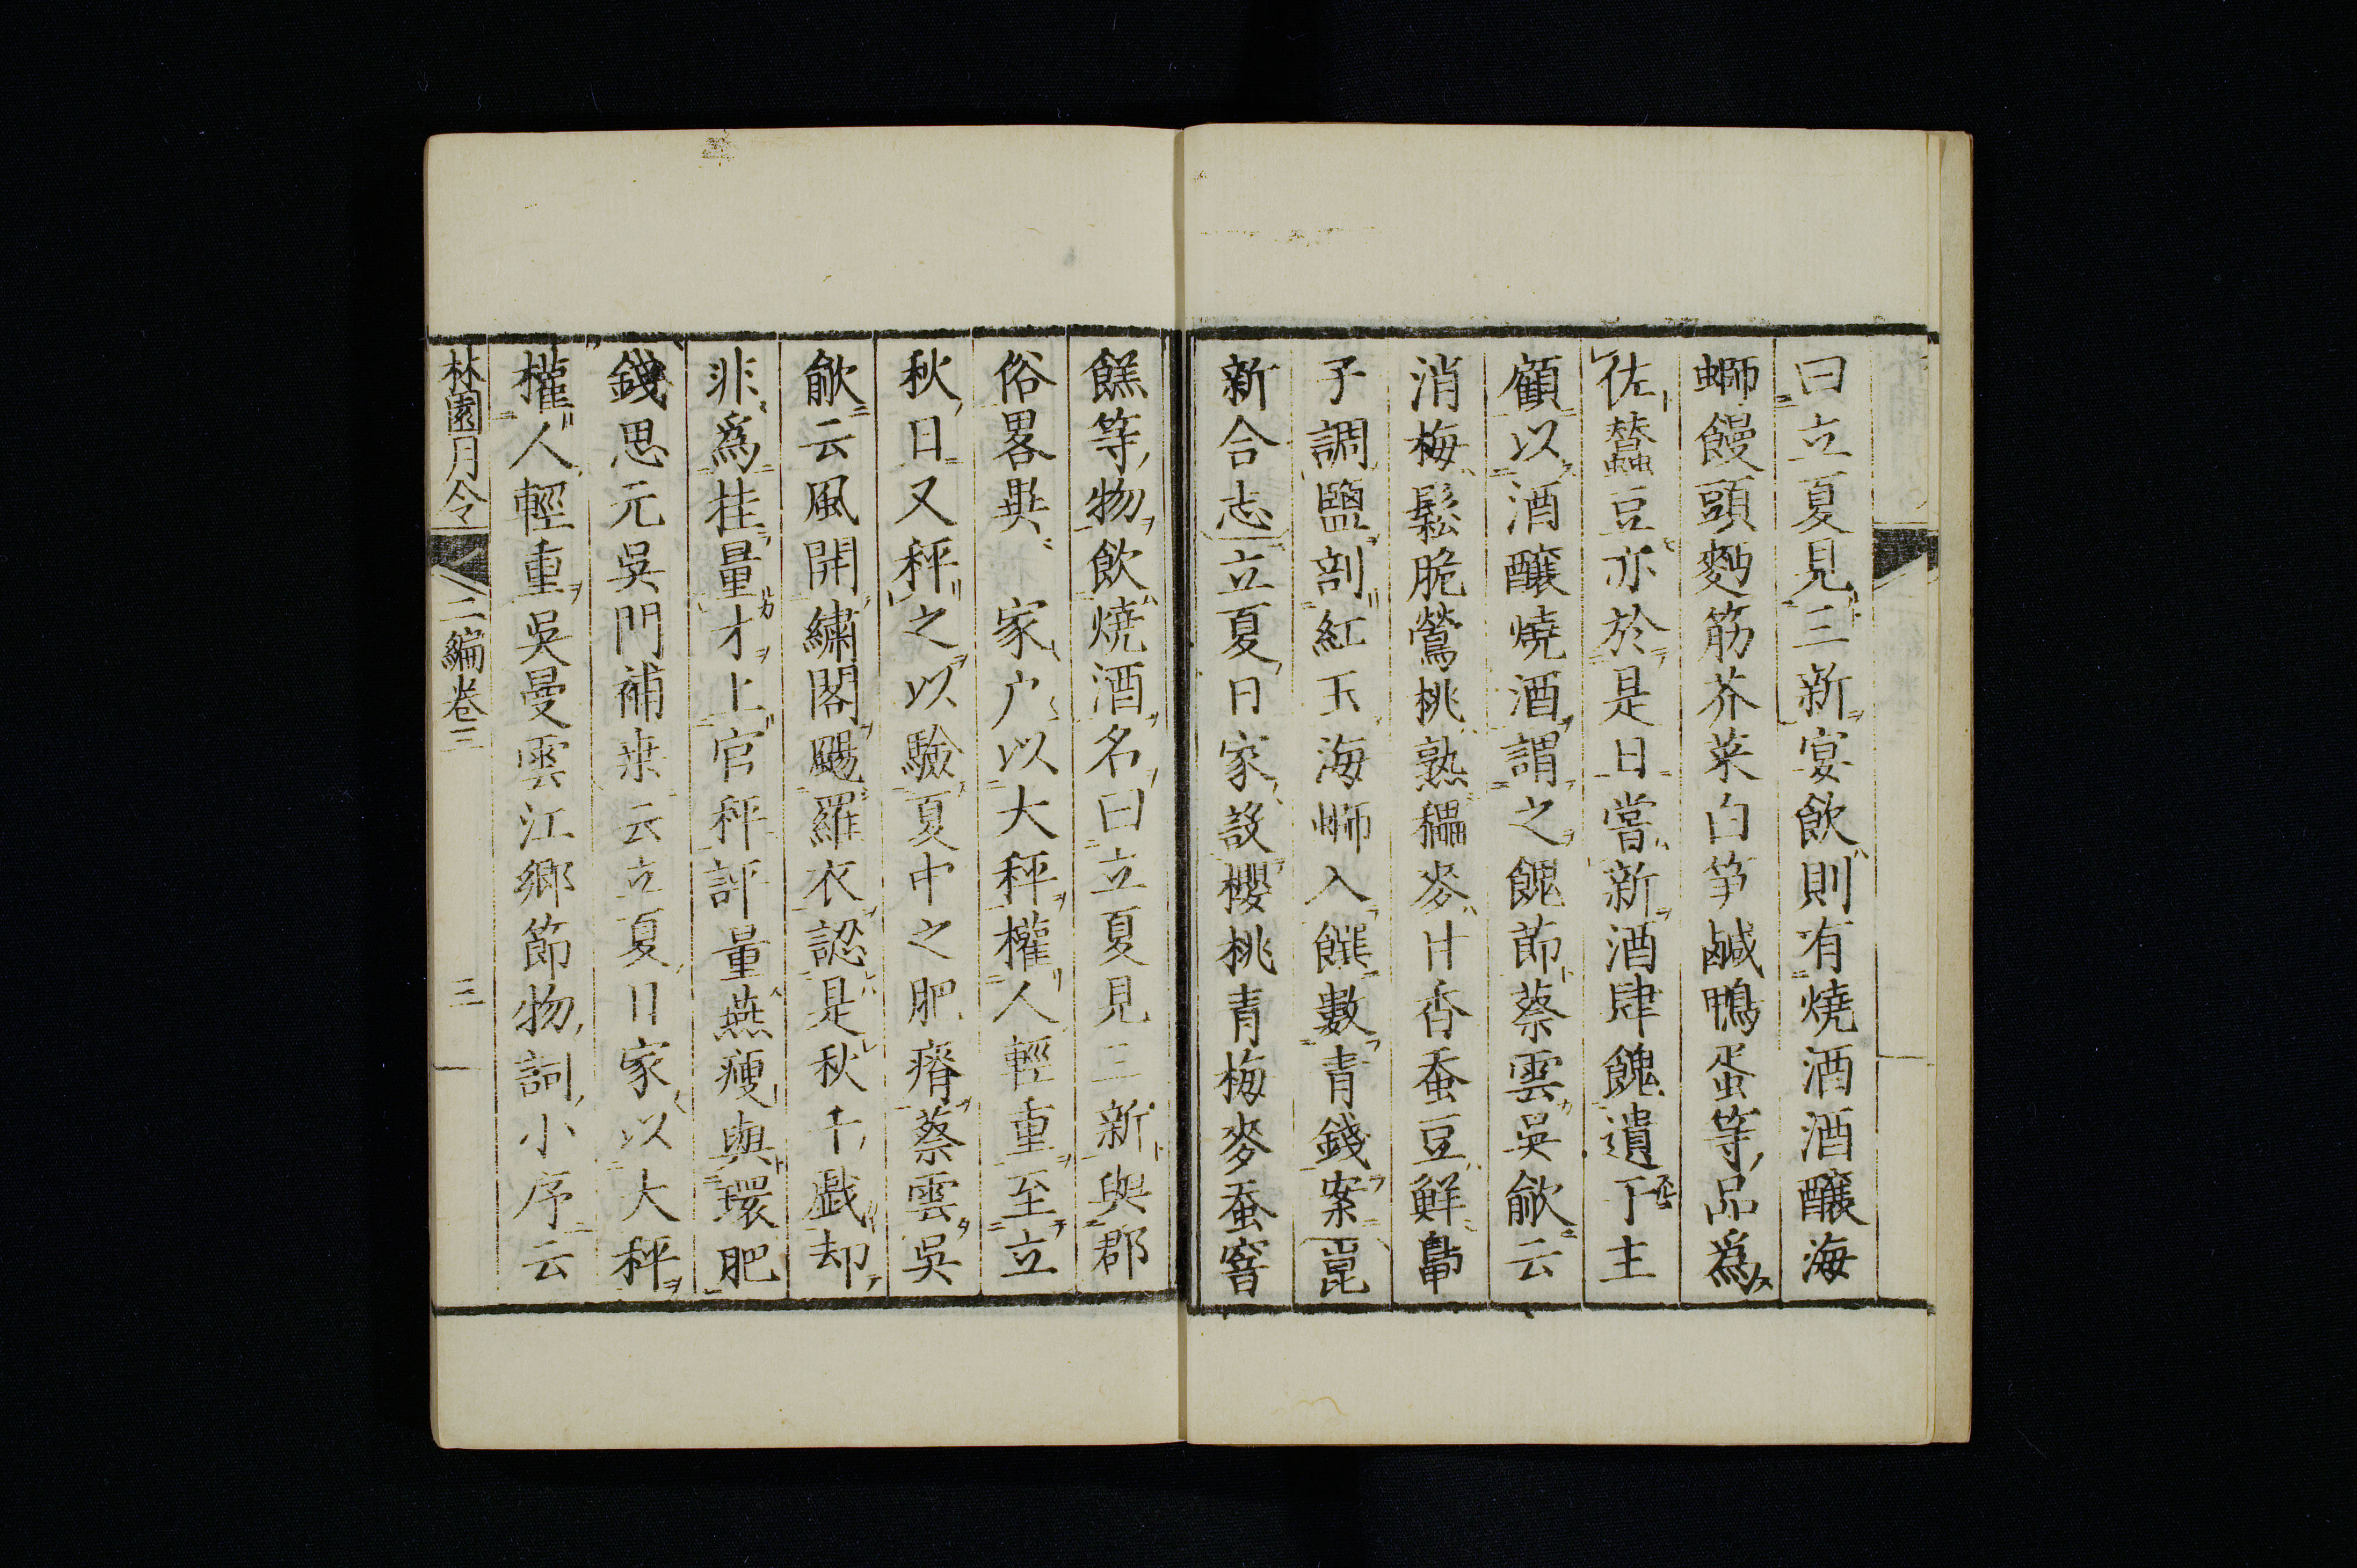 曰立夏見三新宴飲則有燒酒酒釀海
螄饅頭麪筋芥菜白笋鹹鴨蛋等品爲
佐蠶豆亦於是日嘗新酒肆餽遺于主
顧以酒釀燒酒謂之餽節蔡雲吳歈云
消梅鬆脆鶯桃熟穤麥甘香蚕豆鮮鳧
子調鹽剖紅玉海螄入饌數青錢案崑
新合志立夏日家設櫻桃青梅麥蚕窨
餻等物飲燒酒名曰立夏見三新與郡
俗畧異家戶以大秤權人輕重至立
秋日又秤之以驗夏中之肥瘠蔡雲吳
歈云風開繡閣颺羅衣認是秋千戲却
非爲挂量才上官秤評量燕瘦與環肥
錢思元吳門補乗云立夏日家以大秤
權人輕重吳曼雲江鄉節物詞小序云
林園月令 二編卷三 三